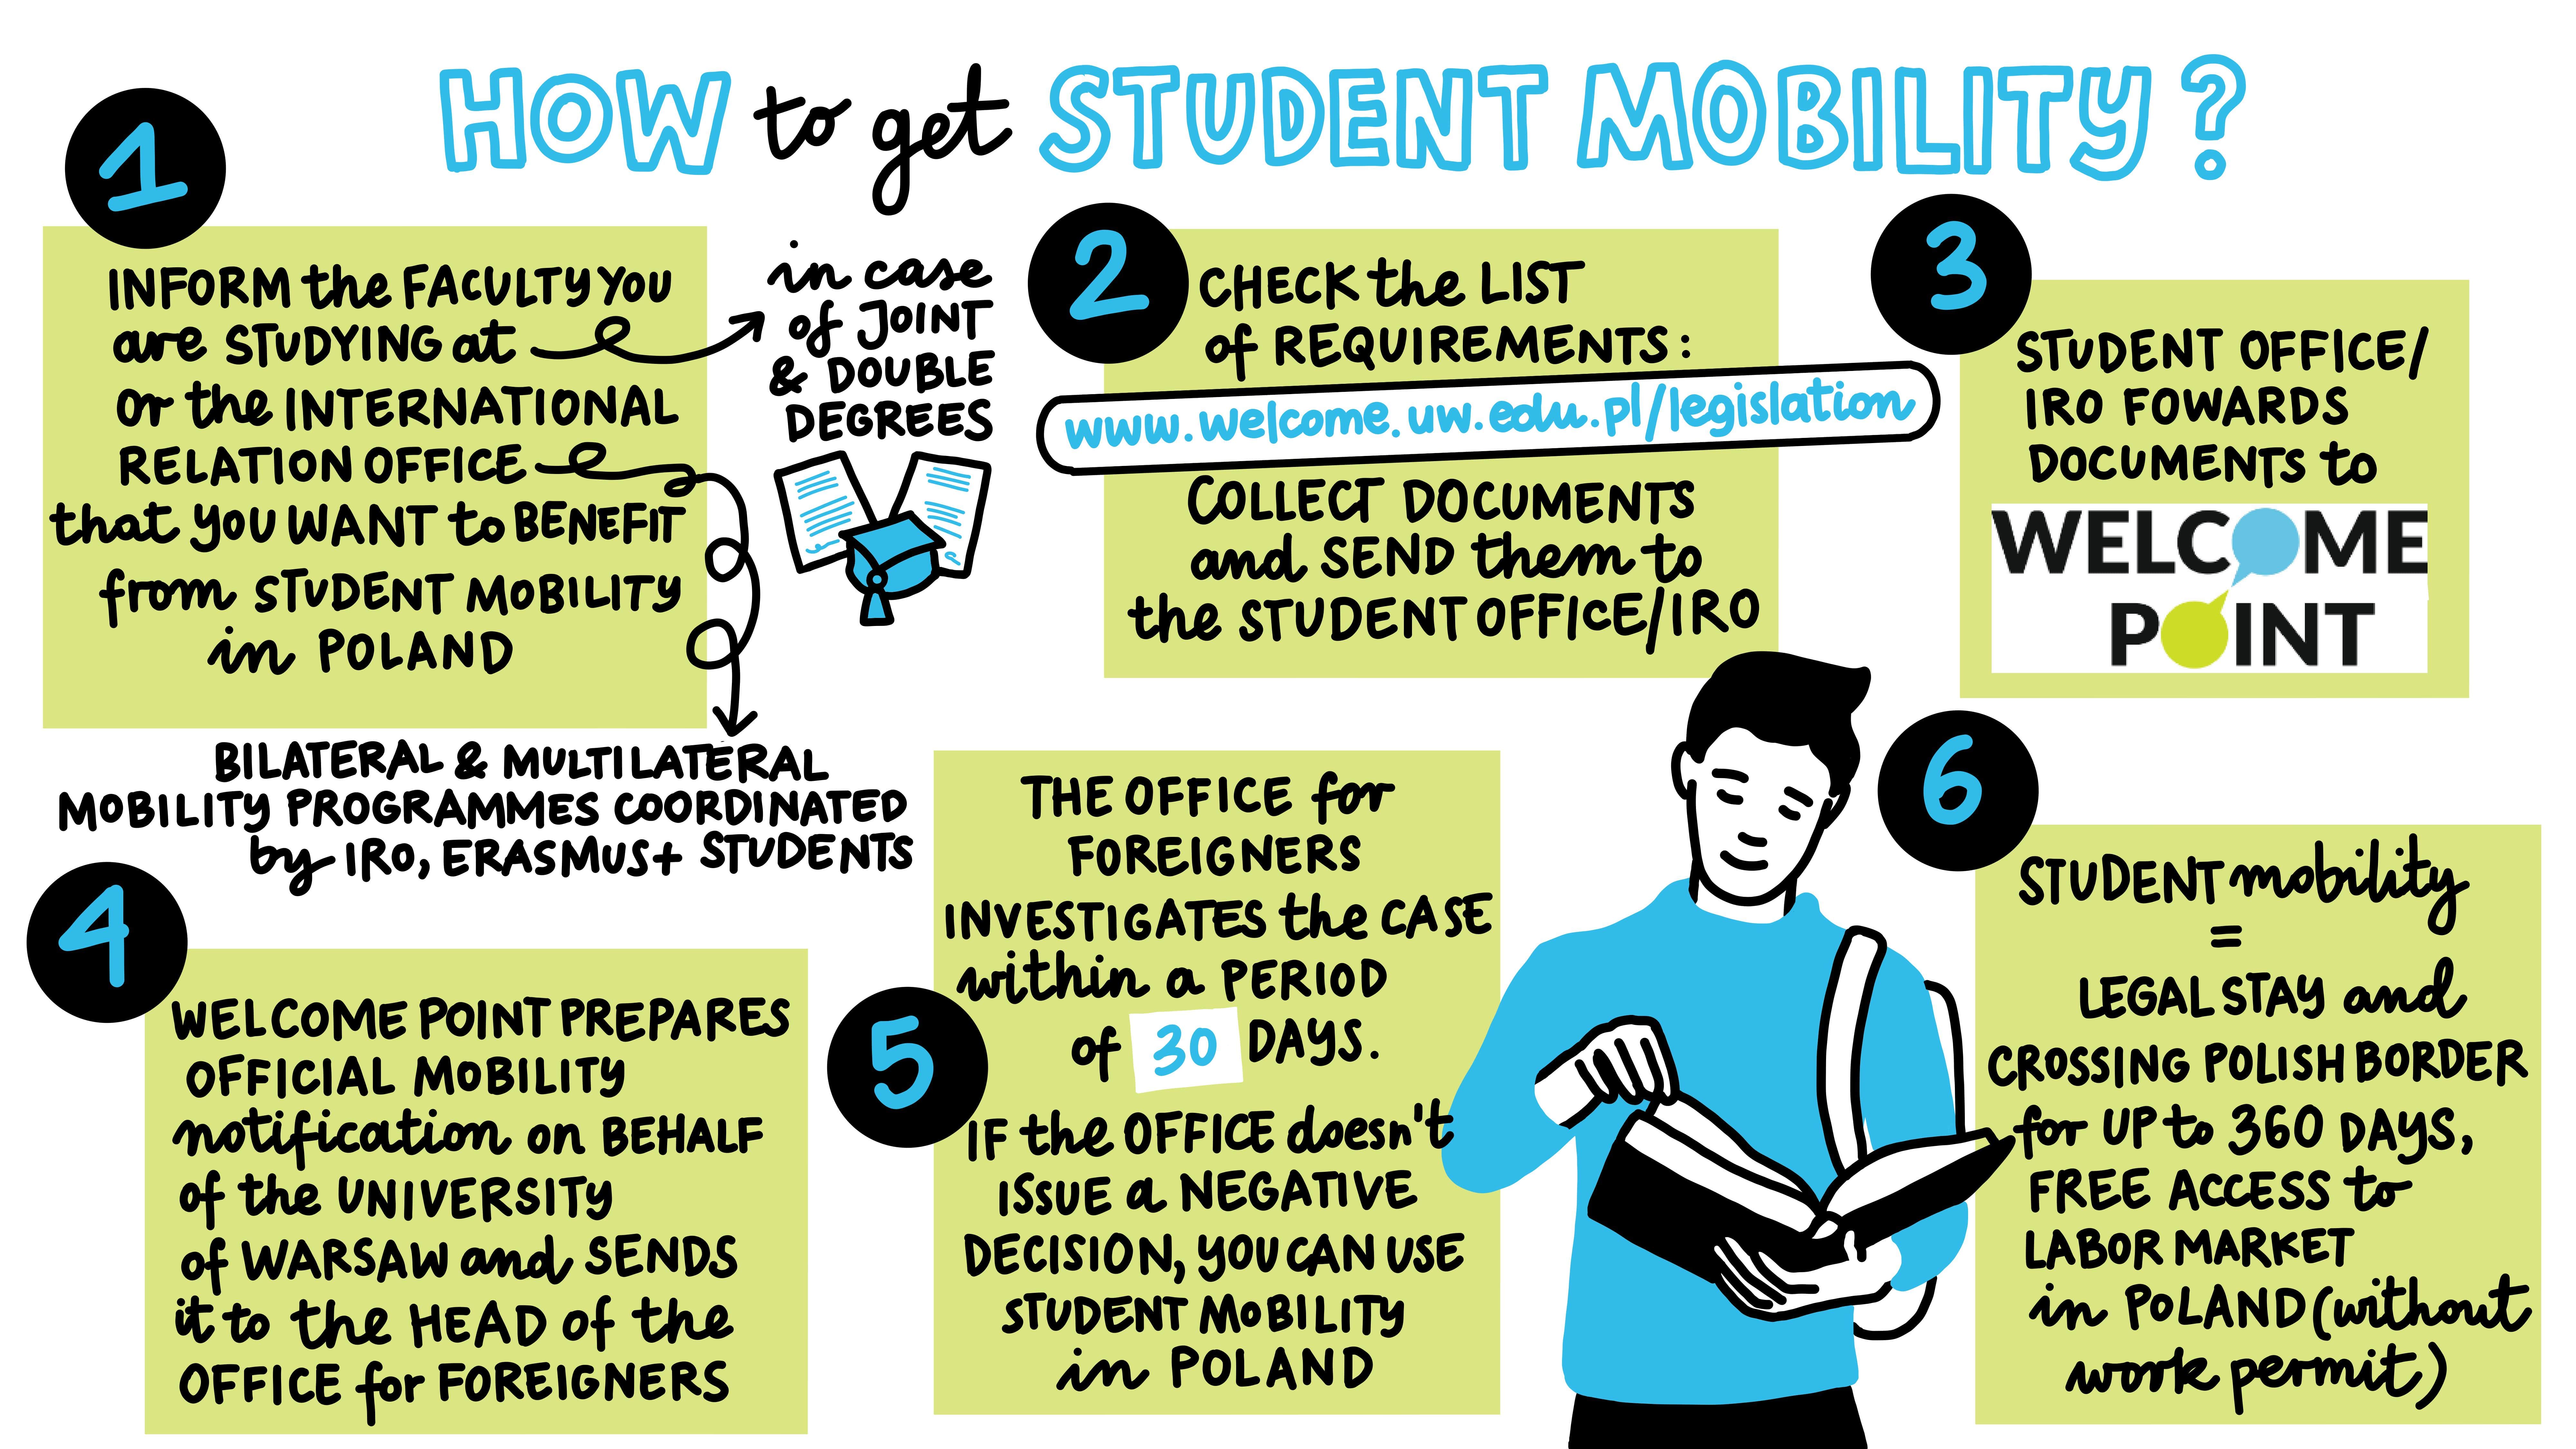 HOW to get STUDENT MOBILITY?
1
INFORM the FACULTY YOU
are STUDYING at
or the INTERNATIONAL
RELATION OFFICE
that YOU WANT to BENEFIT
from STUDENT MOBILITY
in POLAND
in case
of JOINT
& DOUBLE
DEGREES
BILATERAL & MULTILATERAL
MOBILITY PROGRAMMES COORDINATED
by IRO, ERASMUS+ STUDENTS
2
CHECK the LIST
of REQUIREMENTS:
www.welcome.uw.edu.pl/legislation
COLLECT DOCUMENTS
and SEND them to
the STUDENT OFFICE/IRO
3
STUDENT OFFICE/
IRO FOWARDS
DOCUMENTS to
WELCOME
POINT
4
WELCOME POINT PREPARES
OFFICIAL MOBILITY
notification on BEHALF
of the UNIVERSITY
of WARSAW and SENDS
it to the HEAD of the
OFFICE for FOREIGNERS
5
THE OFFICE for
FOREIGNERS
INVESTIGATES the CASE
within a PERIOD
of 30 DAYS.
IF the OFFICE doesn't
ISSUE a NEGATIVE
DECISION, YOU CAN USE
STUDENT MOBILITY
in POLAND
6
STUDENT mobility
=
LEGAL STAY and
CROSSING POLISH BORDER
for UP to 360 DAYS,
FREE ACCESS to
LABOR MARKET
in POLAND (without
work permit)